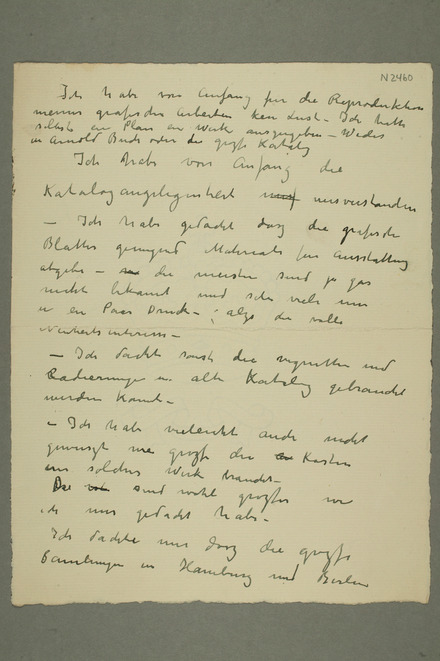 N2460
Ich habe von Anfang für die Reproduktion
meines grafisches Arbeiten kein Lust - Ich hatte
selbste ein Plan en Werk auszugeben - Weder
in Arnold Buch oder die grosse Katalog
Ich habe von Anfang die
Katalogangelegenheit misverstanden
- Ich habe gedacht dasz die grafische
Blätter genugend Materiale für Ausstattung
abgebe - die meisten sind ja gar
nicht bekannt und sehr viele nur
in en Paar Drucke - ; also von
- Ich dachte sonst die vignetten und
Radierungen in alte Katalog gebraucht
werden kannt -
- Ich habe vieleicht auch nicht
gewuszt wie grosse die Kosten
ein solches Werk brauchte -
Die sind wohl groszer wie
ich mir gedacht habe -
Ich dachte mir dasz die grosze
Samlungen in Hamburg und Berlin